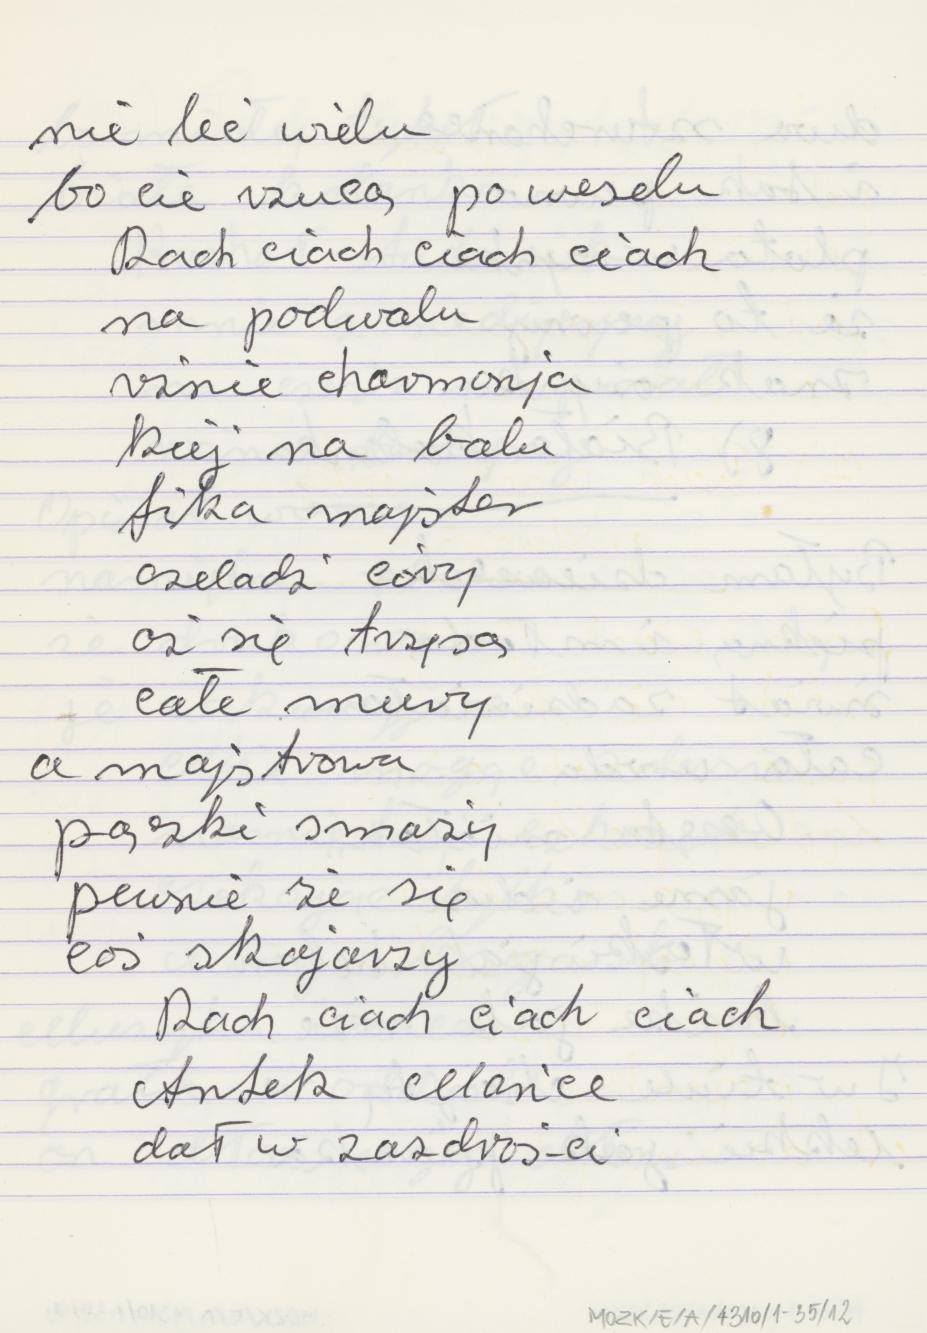 nie leć wielu
bo cie rzucą po weselu
Rach ciach ciach ciach
na podwalu
rżnie charmonja
kiej na balu
fika majster
czeladź córy
oż się trzęsą
całe mury
a majstrowa
pączki smaży
pewnie że się
coś skojarzy
Rach ciach ciach ciach
Antek Mańce
dał w zazdroś-ci
MOZK/E/A/4310/1-35/12